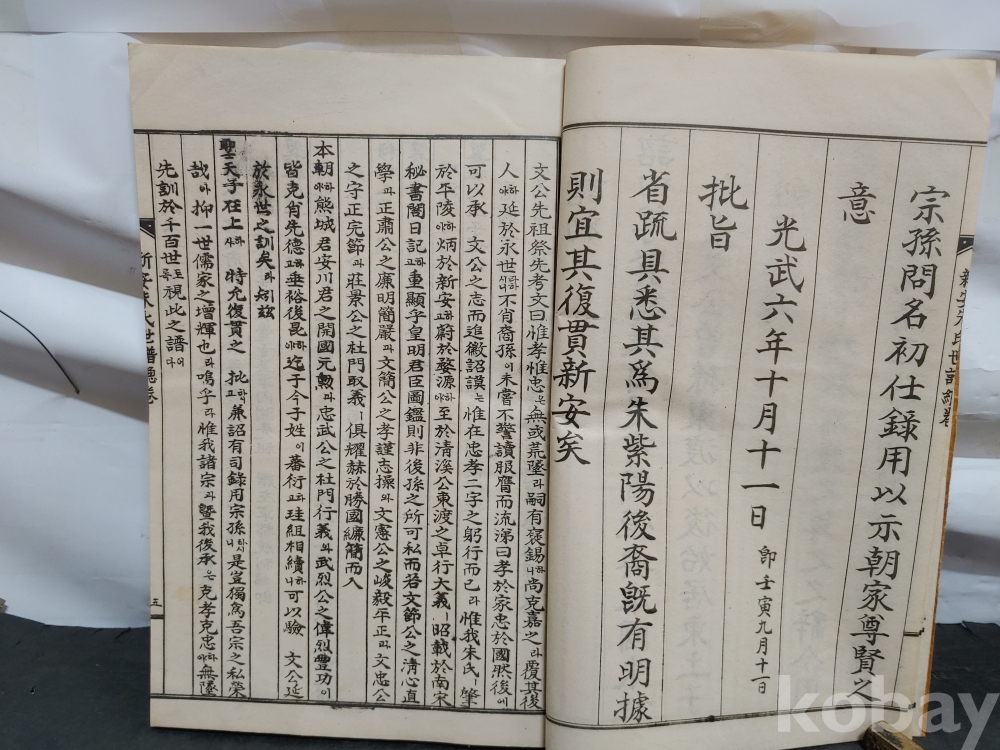 宗孫問名初仕錄用以示朝家尊賢之
意
光武六年十月十一日 卽壬寅九月十一日
批旨
省疏具悉其爲朱紫陽後裔旣有明據
則宜其復貫新安矣
新安朱氏世譜總卷
文公先祖祭先考文曰惟孝惟忠은無或荒墜라嗣有褒錫하니尙克嘉之라覆其後
人하야延於永世라하시니不肖裔孫이未嘗不警讀服膺而流涕曰孝於家忠於國然後에
可以承 文公之志而追徽詔謨는惟在忠孝二字之躬行而已라惟我朱氏ㅣ肇
於平陵하야炳於新安하고蔚於婺源하야至於淸溪公東渡之卓行大義ㅣ昭載於南宋
秘書閣日記하고重顯乎皇明君臣圖鑑則非後孫之所可私而若文節公之淸心直
學과正肅公之廉明簡嚴과文簡公之孝謹志操와文憲公之峻毅平正과文忠公
之守正完節과莊景公之杜門取義ㅣ俱耀赫於勝國簾簡而入
本朝하야熊城君安川君之開國元勳과忠武公之杜門行義와武烈公之偉烈豐功이
皆克肖先德하고垂裕後昆하야迄于今子姓이蕃衍하고珪組相續하니可以驗 文公延
於永世之訓矣라矧玆
聖天子在上하사 時允復貫之 批하시고兼詔有司錄用宗孫하시니是豈獨爲吾宗之私榮
哉아抑一世儒家之增輝也라嗚乎라惟我諸宗과曁我後承은克孝克忠하야無墜
先訓於千百世토록視此之譜어다
新安朱氏世譜總卷
五
kobay